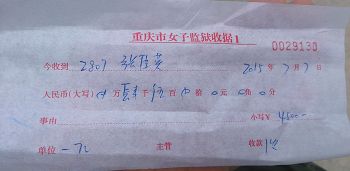 重庆市女子监狱收据1
0029130
今收到 2807 张 2015年7月7日
人民币(大写) 万 千伍百 拾 元 角 分
事由 小写¥ 4500
单位 一 主管 收款